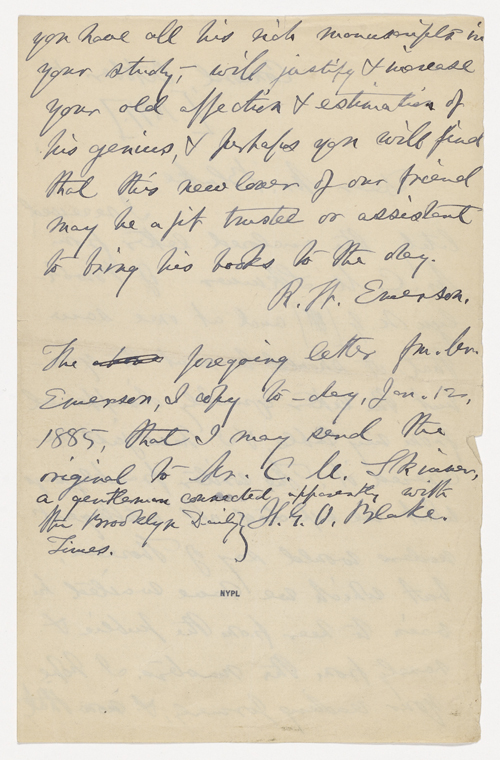 you have all his rich manuscripts in
your study, – will justify & increase
your old affection & estimation of
his genius, & perhaps you will find
that this new lover of our friend
may be a fit trustee or assistant
to bring his books to the day.
R. W. Emerson.
The foregoing letter fm. Mr.
Emerson, I copy to-day, Jan. 12,
1885, that I may send the
original to Mr. C. M. Skinner,
a gentleman connected apparently with
the Brooklyn Daily
Times.
H. G. O. Blake.
NYPL